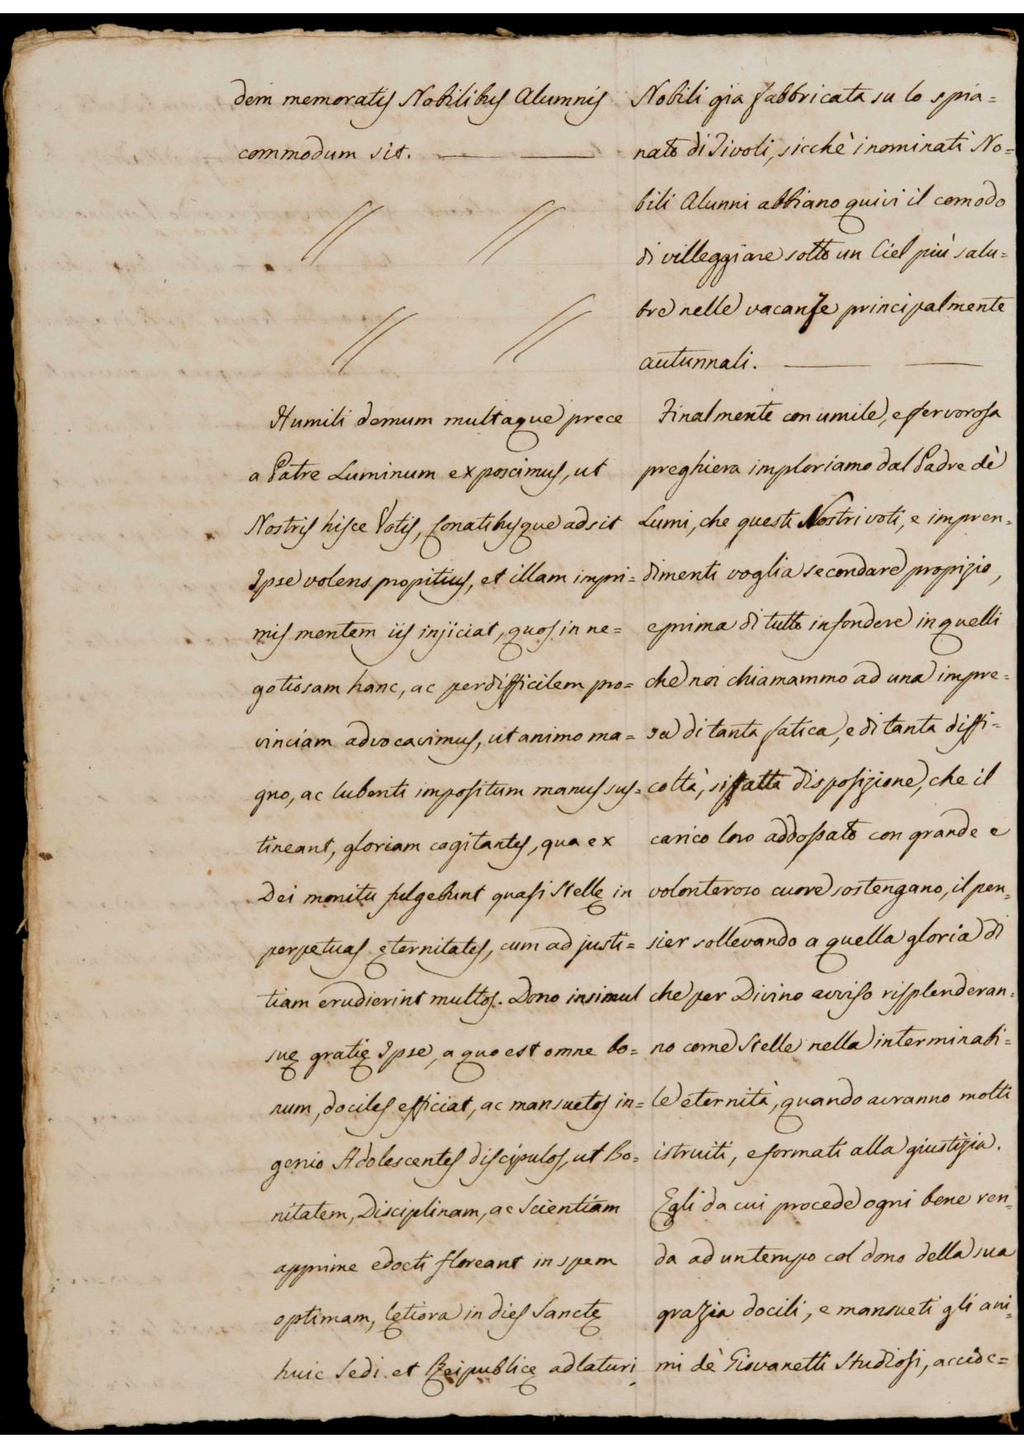 dem memoratis Nobilibus Alumnis
commodum sit. — —
// //
// //
Humili demum multaque prece
a Patre Luminum exposcimus, ut
Nostris hisce Votis, conatibusque adsit
Ipse volens propitius, et illam impri=
mis mentem iis injiciat, quos in ne=
gotiosam hanc, ac perdifficilem pro=
vinciam advocavimus, ut animo ma=
gno, ac lubenti impositum manus sus=
tineant, gloriam cogitantes, qua ex
Dei monitu fulgebunt quasi Stellę in
perpetuas ęternitates, cum ad justi=
tiam erudierint multos. Dono insimul
suę gratię Ipse, a quo est omne bo=
num, dociles efficiat, ac mansuetos in=
genio Adolescentes discipulos, ut Bo=
nitatem, Disciplinam, ac Scientiam
apprime edocti floreant in spem
optimam, lętiora in dies Sanctę
huic Sedi et Reipublicę adlaturi,
Nobili gia fabbricata su lo spia=
nato di Tivoli, sicchè i nominati No=
bili Alunni abbiano quivi il comodo
di villeggiare sotto un Ciel più salu=
bre nelle vacanze principalmente
autunnali. — —
Finalmente con umile, e fervorosa
preghiera imploriamo dal Padre dè
Lumi, che questi Nostri voti, e impren=
dimenti voglia secondare propizio,
e prima di tutto infondere in quelli
che noi chiamammo ad una impre=
sa di tanta fatica, e di tanta diffi=
coltà, siffatta disposizione, che il
carico loro addossato con grande e
volonteroso cuore sostengano, il pen=
sier sollevando a quella gloria di
che per Divino avviso risplenderan=
no come Stelle nella interminabi=
le eternità, quando avranno molti
istruiti, e formati alla giustizia.
Egli da cui procede ogni bene ren=
da ad un tempo col dono della sua
grazia docili, e mansueti gli ani=
mi dè Giovanetti Studiosi, accioc=